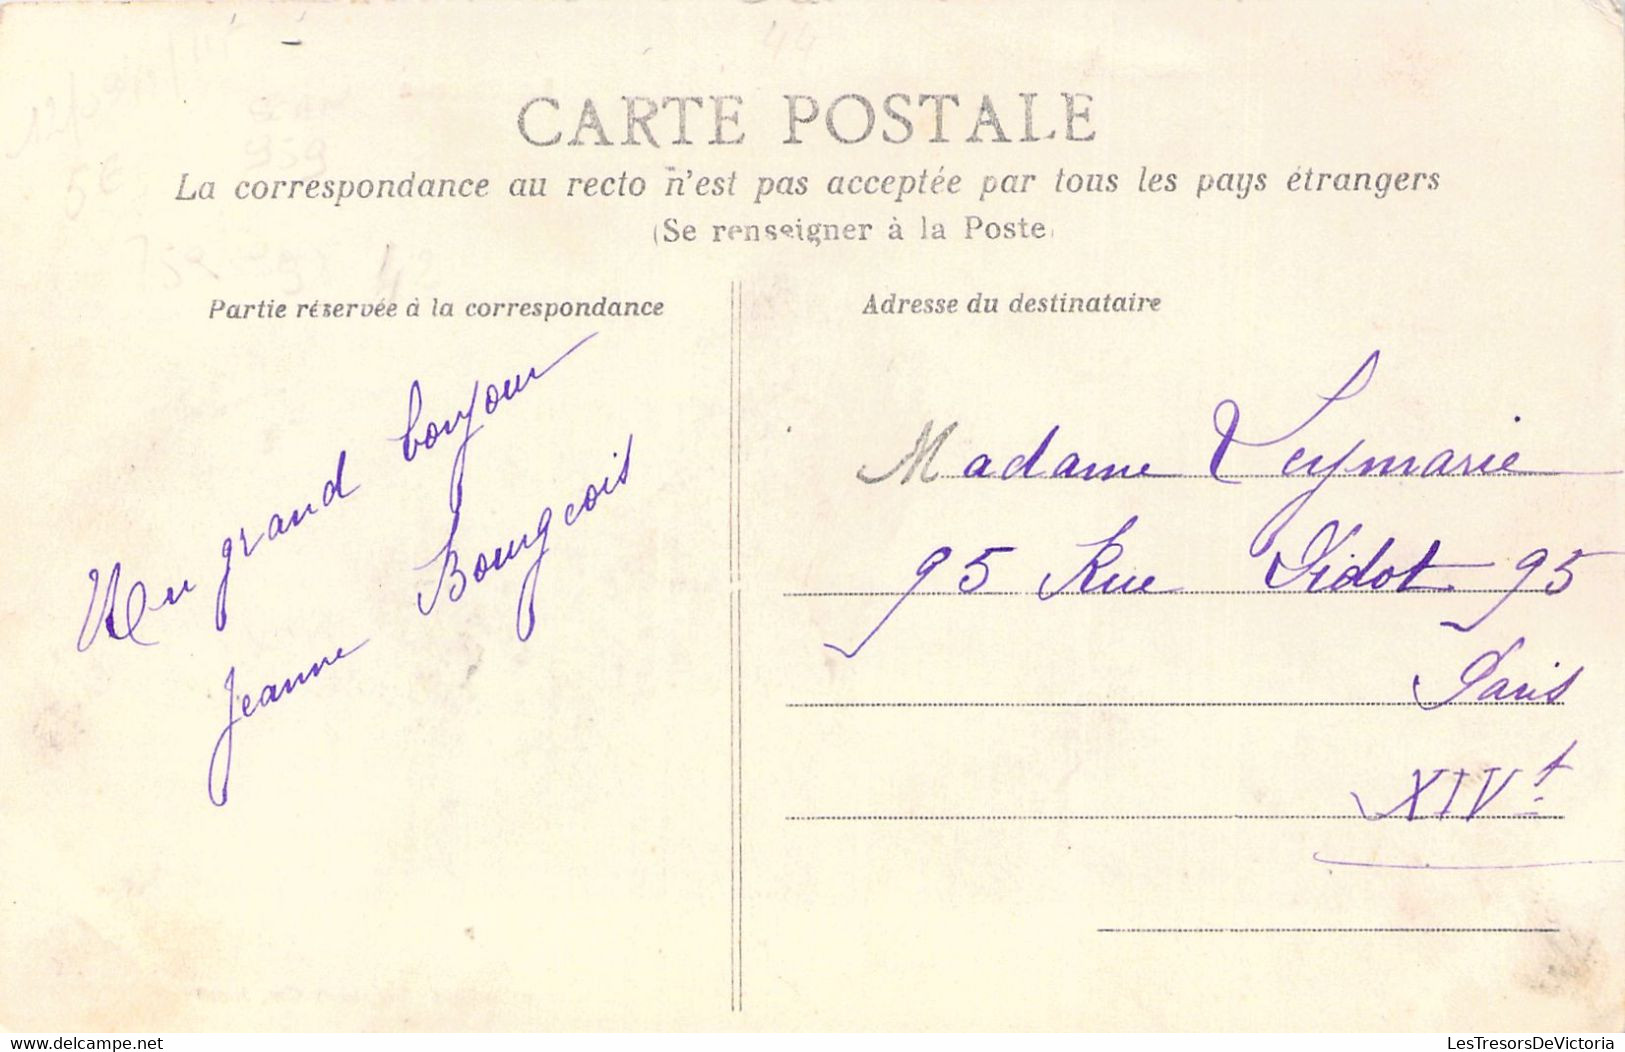 CARTE POSTALE
La correspondance au recto n'est pas acceptée par tous les pays étrangers
(Se renseigner à la Poste)
Partie réservée à la correspondance
Un grand bonjour
Jeanne Bourgeois
Adresse du destinataire
Madame Leymarie
95 Rue Didot 95
Paris
XIVt
959
5€
44
delcampe.net
LesTresorsDeVictoria